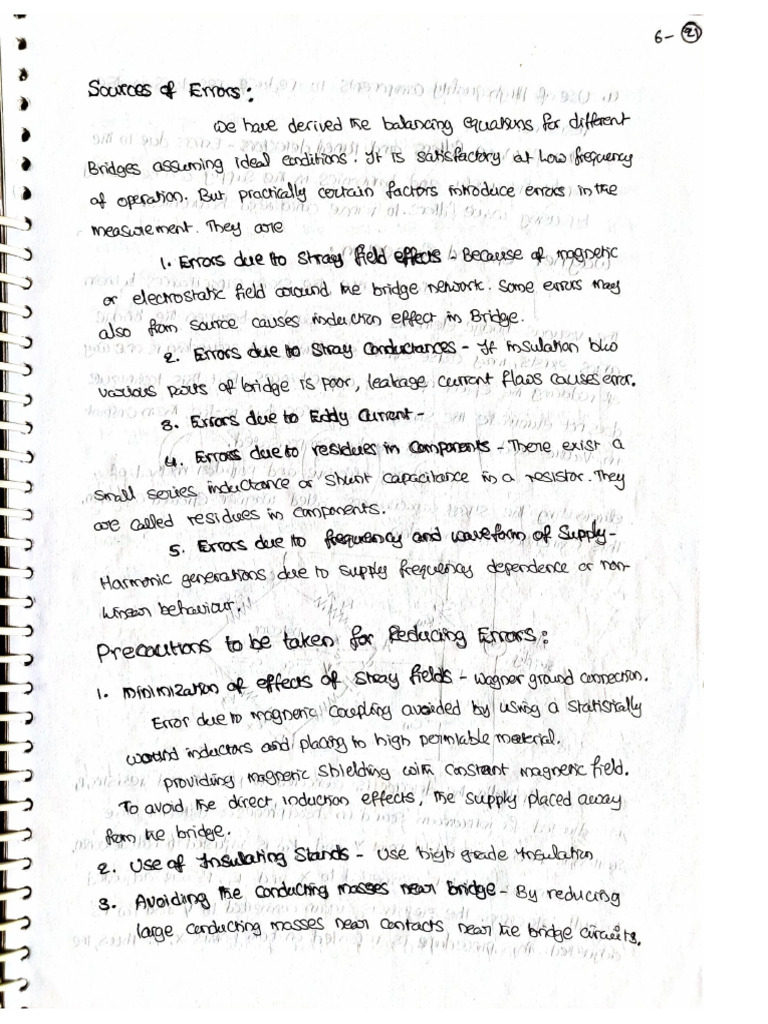 6-21
Sources of Errors:
We have derived the balancing equations for different
Bridges assuming ideal conditions. It is satisfactory at Low frequency
of operation. But practically certain factors introduce errors in the
measurement. They are
1. Errors due to stray field effects - Because of magnetic
or electrostatic field around the bridge network. Some errors may
also from source causes induction effect in Bridge.
2. Errors due to Stray Conductances - If insulation b/w
various parts of bridge is poor, leakage current flows causes error.
3. Errors due to Eddy Current -
4. Errors due to residues in components - There exist a
small series inductance or shunt capacitance in a resistor. They
are called residues in components.
5. Errors due to frequency and waveform of Supply -
Harmonic generations due to supply frequency dependence or non-
linear behaviour.
Precautions to be taken for Reducing Errors:
1. Minimization of effects of stray fields - Wagner ground connection.
Error due to magnetic coupling avoided by using a statistically
wound inductors and placing to high permiable material.
providing magnetic shielding with constant magnetic field.
To avoid the direct induction effects, the supply placed away
from the bridge.
2. Use of Insulating Stands - Use high grade Insulation
3. Avoiding the conducting masses near bridge - By reducing
large conducting masses near contacts near the bridge circuits.